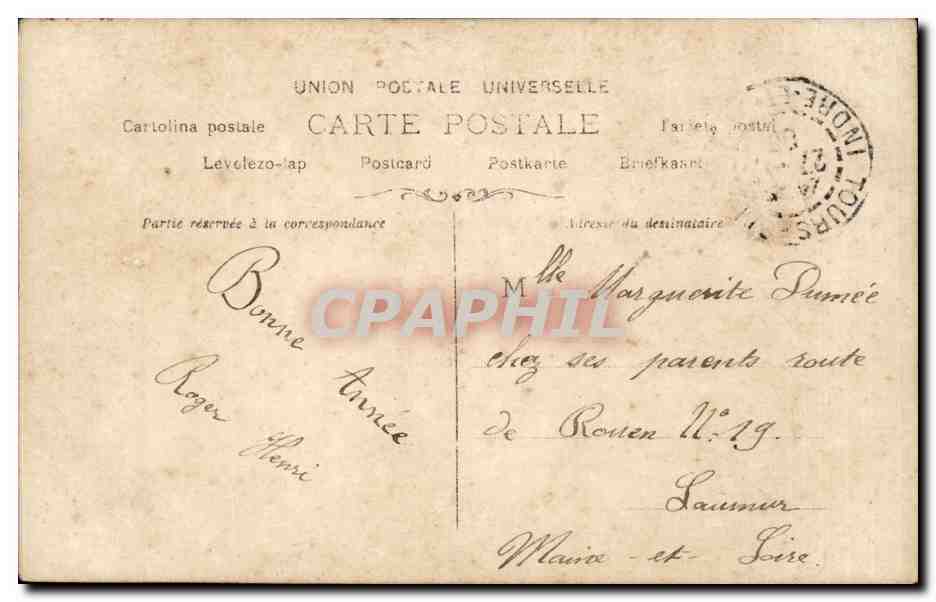 UNION POSTALE UNIVERSELLE
Cartolina postale CARTE POSTALE Tarjeta postal
Levelezo-lap Postcard Postkarte Briefkaart
Partie réservée à la correspondance
Adresse du destinataire
TOURS INDRE-ET-
21
Bonne Année
Roger
Henri
Mlle Marguerite Dumée
chez ses parents route
de Rouen N° 19.
Saumur
Maine-et-Loire.
CPAPHIL